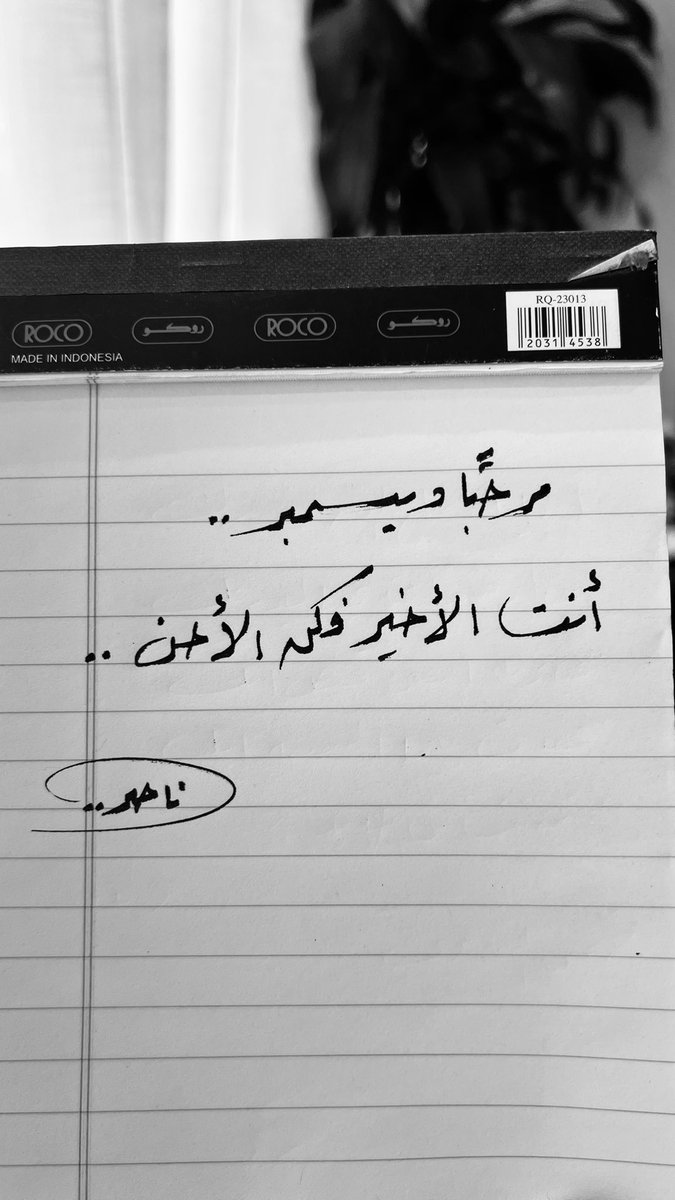 ROCO روكو ROCO روكو
RQ-23013
2031 4538
MADE IN INDONESIA
مرحبًا ديسمبر ..
أنت الأخير فكن الأحن ..
ناصر ..